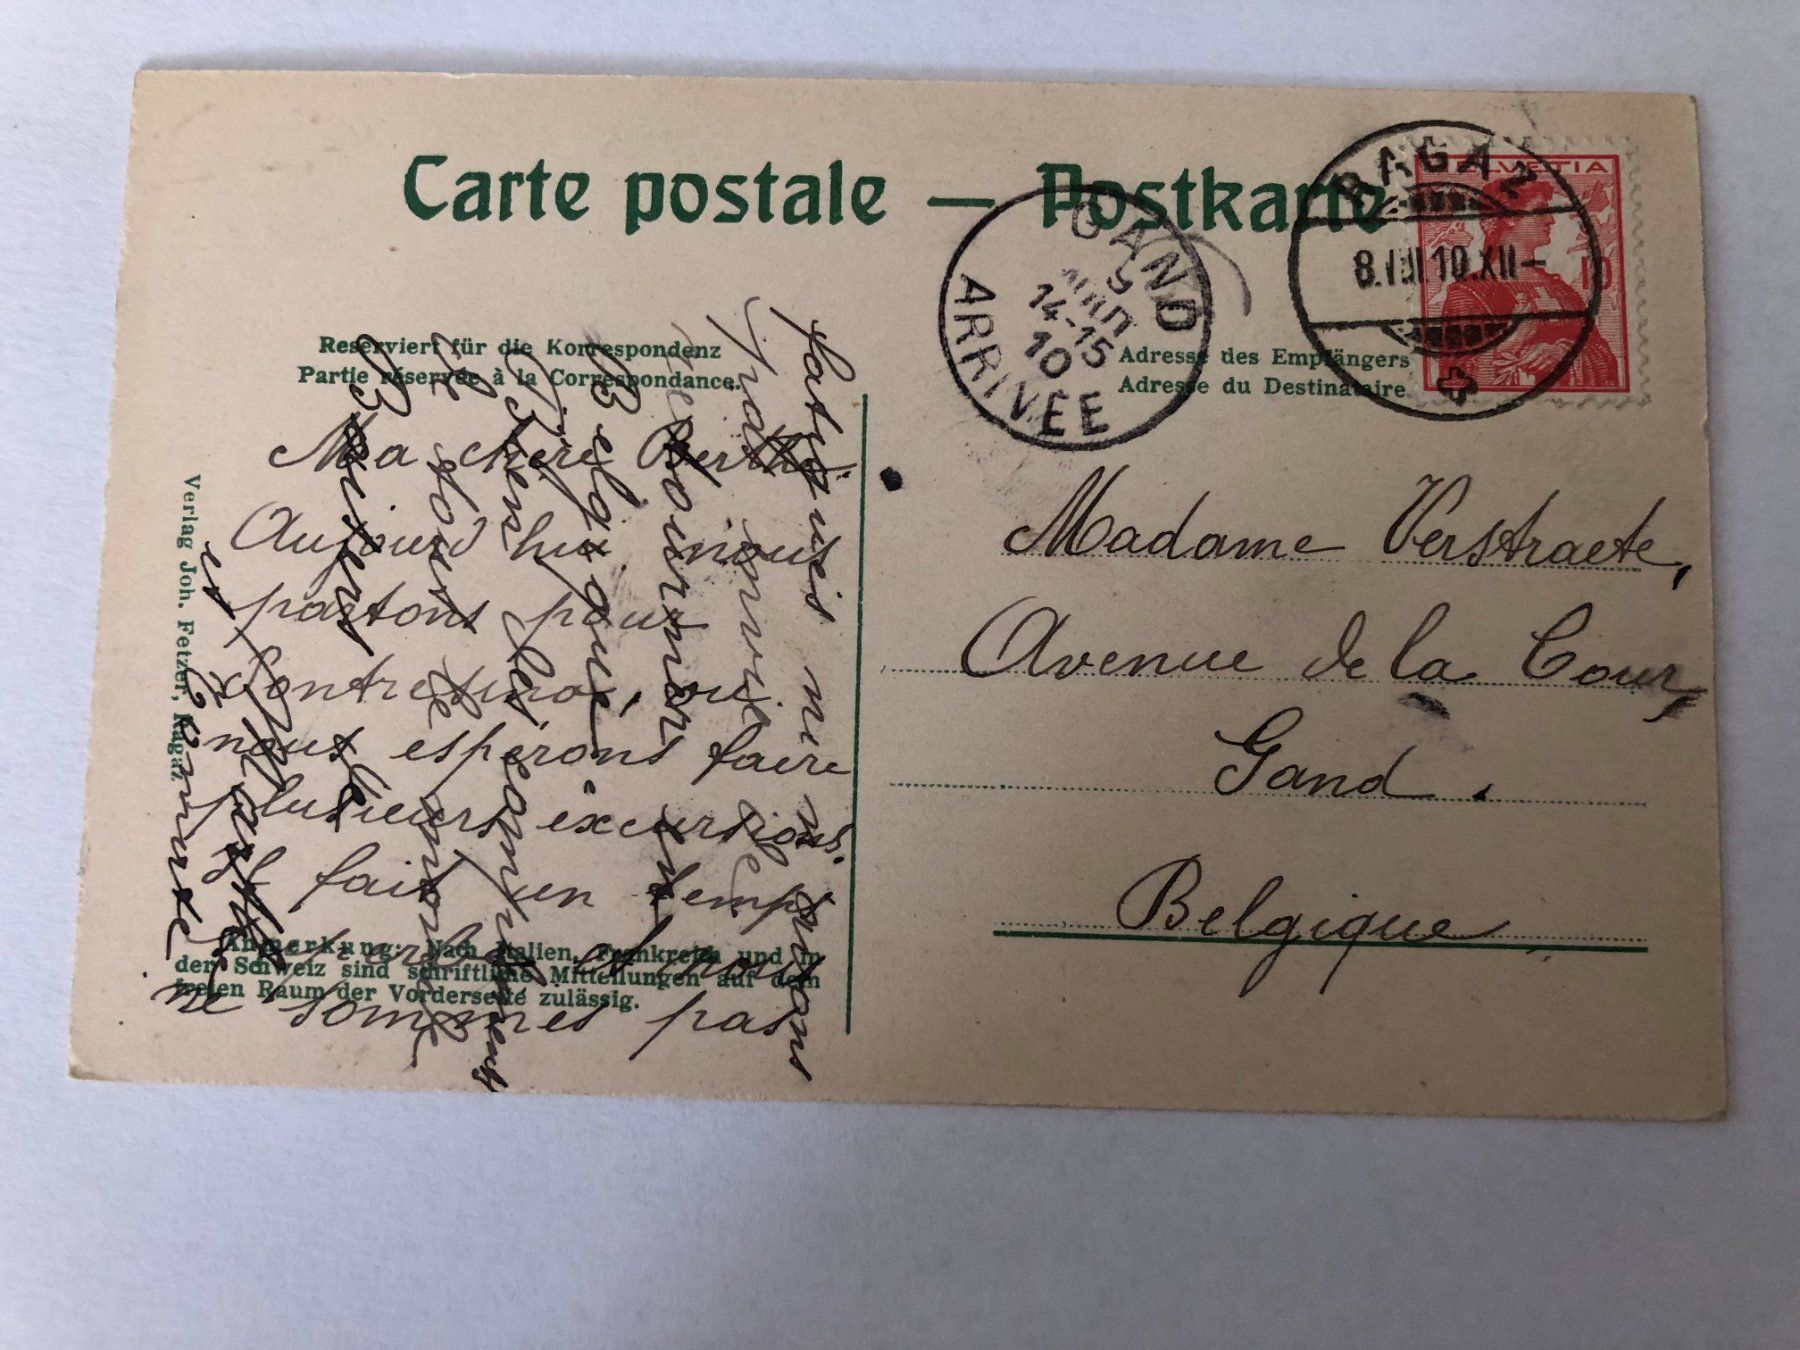 Carte postale — Postkarte
HELVETIA
10
RAGAZ
8.VIII.10.XII–
GAND
9
AOUT
14-15
10
ARRIVÉE
Reserviert für die Korrespondenz
Partie réservée à la Correspondance.
Adresse des Empfängers
Adresse du Destinataire
Ma chère Berthe
Aujourd'hui nous
partons pour
Pontresina, où
nous espérons faire
plusieurs excursions.
Il fait un temps
superbe et nous
ne sommes pas
fatigués ni n'avons
envie de
retourner en
Belgique
Bien des compliments
à tout le monde
Baisers
Madame Verstraete,
Avenue de la Cour,
Gand.
Belgique
Verlag Joh. Fetzer, Ragaz
Anmerkung: Nach Italien, Frankreich und in
der Schweiz sind schriftliche Mitteilungen auf dem
freien Raum der Vorderseite zulässig.